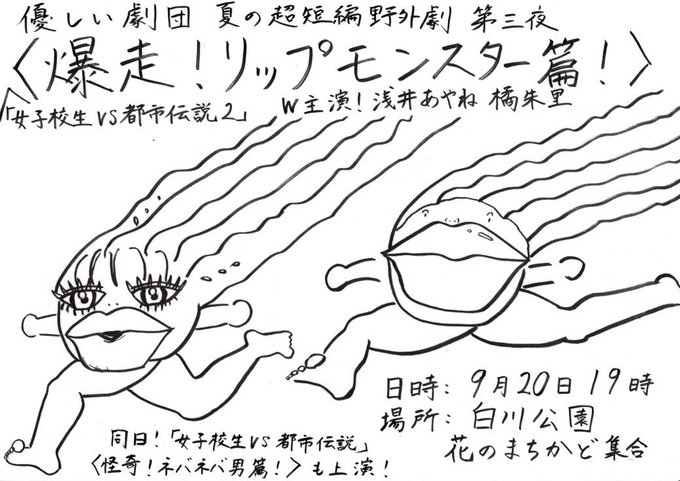 優しい劇団 夏の超短編野外劇 第三夜
〈爆走!リップモンスター篇!〉
「女子校生VS都市伝説2」 W主演! 浅井あやね 橘朱里
日時: 9月20日19時
場所: 白川公園
花のまちかど集合
同日!「女子校生VS都市伝説」
〈怪奇!ネバネバ男篇!〉も上演!